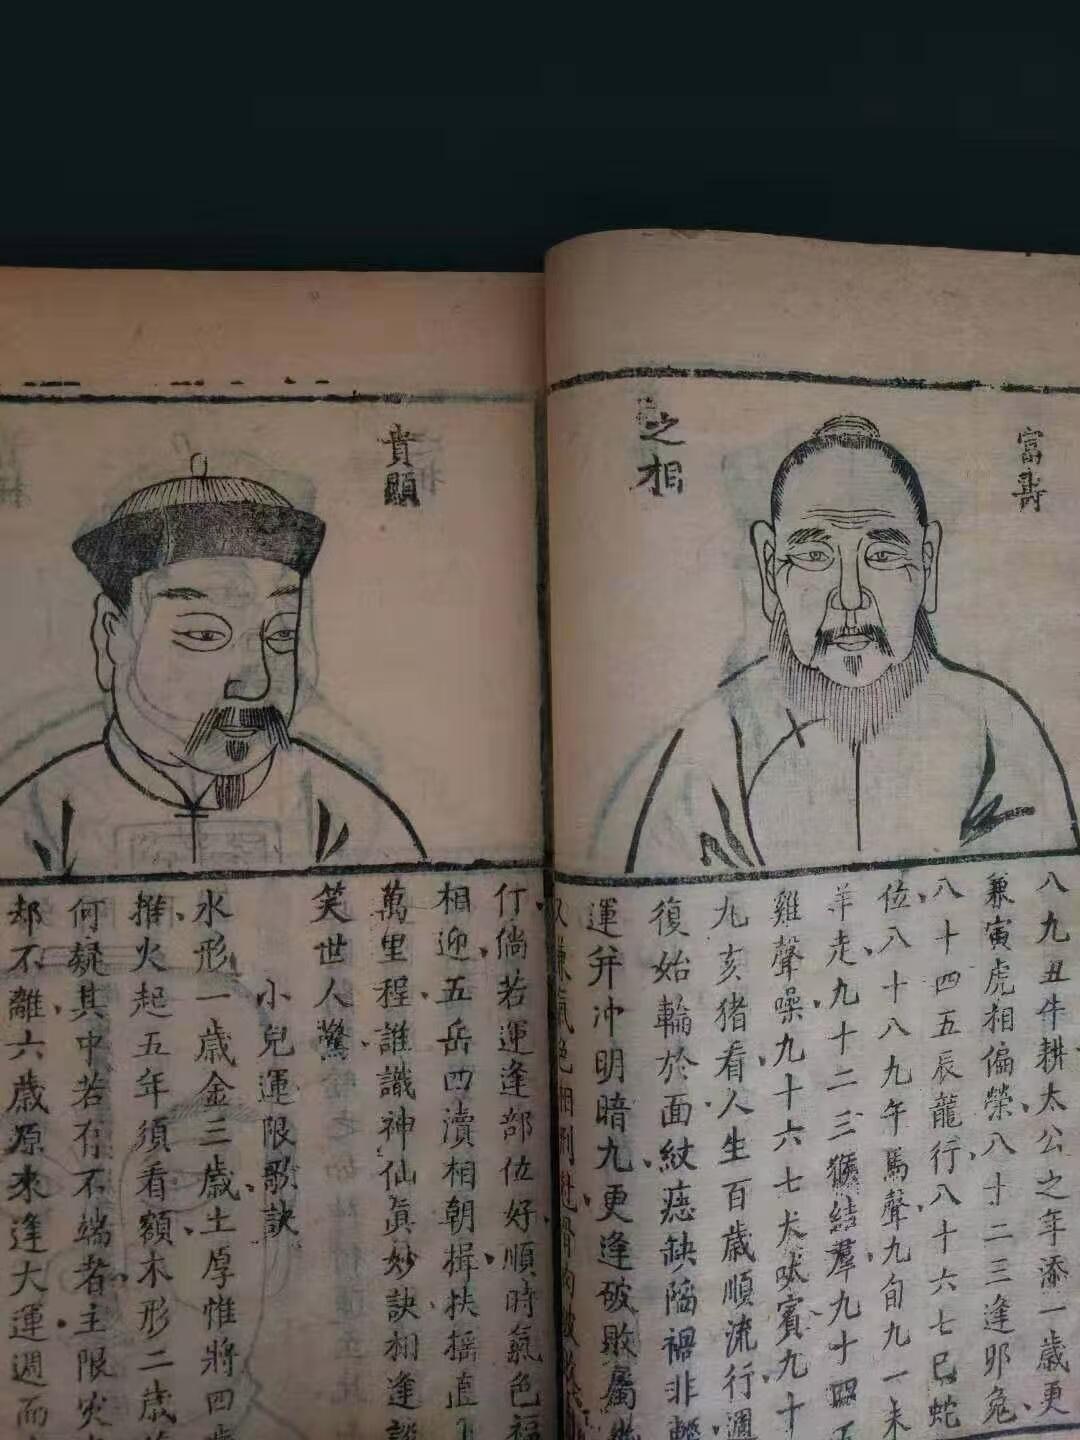 富壽
之相
八九丑牛耕太公之年添一歲更
兼寅虎相偏榮八十二三逢卯兔
八十四五辰龍行八十六七巳蛇
位八十八九午馬聲九旬九一未
羊走九十二三猴結羣九十四五
雞聲噪九十六七犬吠賓九十
九亥猪看人生百歲順流行週
復始輪於面紋痣缺陷禍非輕
運并冲明暗九更逢破敗屬
又兼氣色相刑剋骨肉破
貴顯
行倘若運逢部位好順時氣色福
相迎五岳四瀆相朝揖扶搖直
萬里程誰識神仙眞妙訣相逢談
笑世人驚
小兒運限歌訣
水形一歲金三歲土厚惟將四
推火起五年須看額木形二歲
何疑其中若有不端者主限災
却不離六歲原來逢大運週而